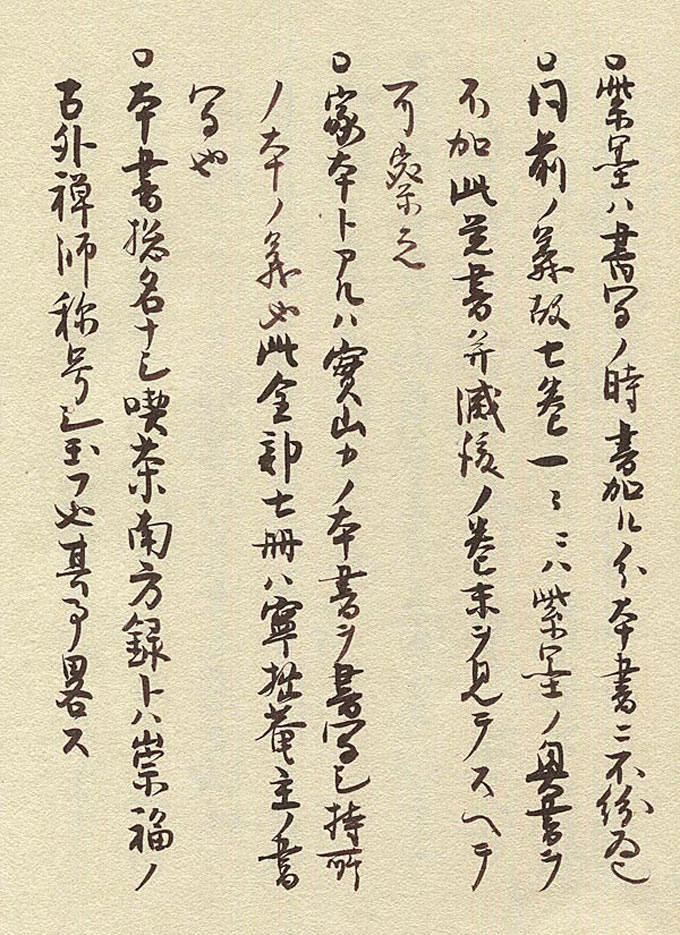 ○紫墨ハ書写ノ時書加ルハ分本書ニ不紛為也
○同前ノ義故七巻一々ニハ紫墨ノ奥書ヲ
不加此覚書并滅後ノ巻末ヲ見テスヘテ
可察之
○家本トアルハ實山カノ本書ヲ書写シ持所
ノ本ノ義也此全部七冊ハ寧拙菴主ノ書
写也
○本書惣名ナシ喫茶南方録トハ崇福ノ
古外禅師称号シ玉フ也其事畧ス